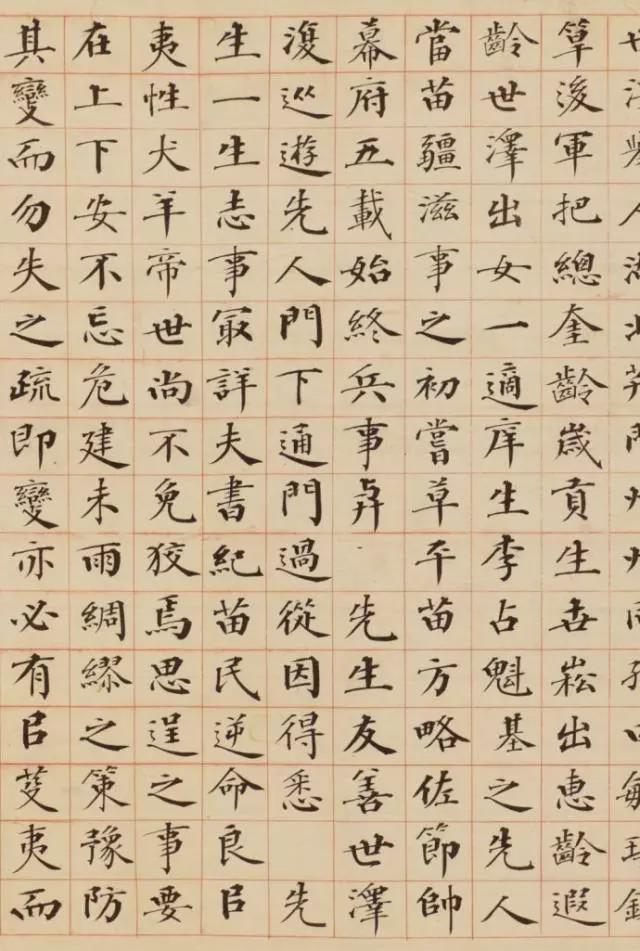 後軍把總奎齡歲貢生世崧出惠齡遐
齡世澤出女一適庠生李占魁基之先人
當苗疆滋事之初嘗草平苗方略佐節帥
幕府五載始終兵事與 先生友善世澤
復巡遊先人門下通門過從因得悉 先
生一生志事冣詳夫書紀苗民逆命良㠯
夷性犬羊帝世尚不免狡焉思逞之事要
在上下安不忘危建未雨綢繆之策豫防
其變而勿失之疏即變亦必有㠯芟夷而